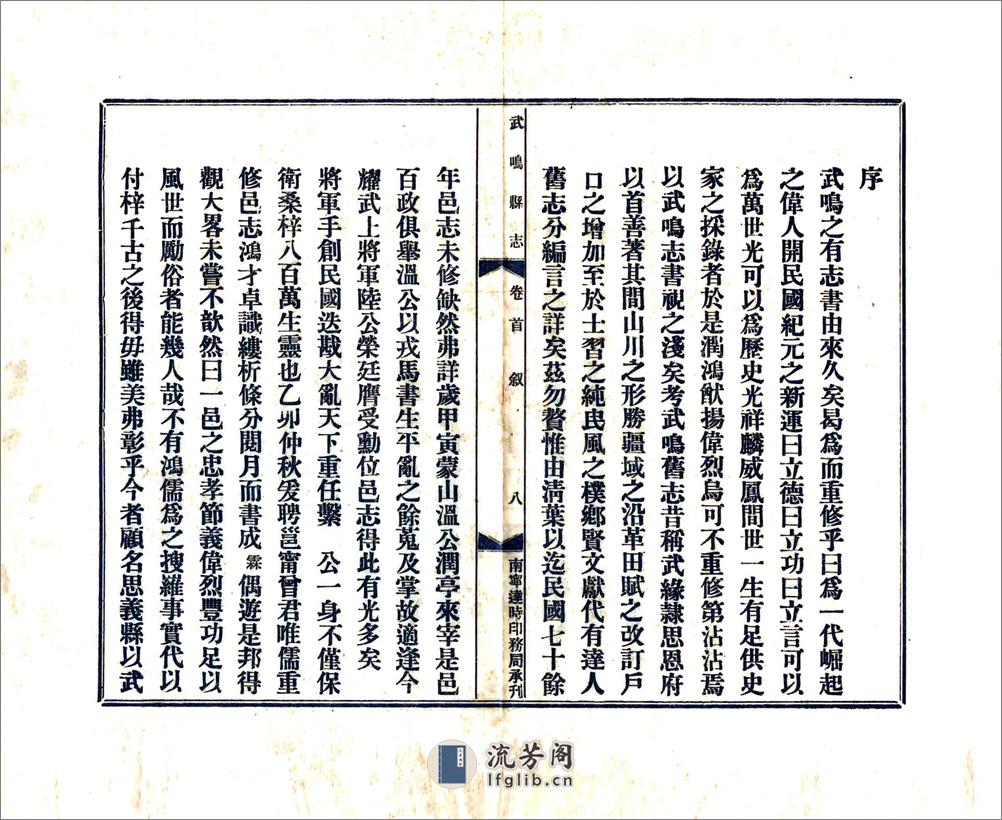 序
武鳴之有志書由來久矣曷爲而重修乎曰爲一代崛起
之偉人開民國紀元之新運曰立德曰立功曰立言可以
爲萬世光可以爲歷史光祥麟威鳳間世一生有足供史
家之採錄者於是潤鴻猷揚偉烈烏可不重修第沾沾焉
以武鳴志書視之淺矣考武鳴舊志昔稱武緣隷思恩府
以首善著其間山川之形勝疆域之沿革田賦之改訂戶
口之增加至於士習之純民風之樸鄉賢文獻代有達人
舊志分編言之詳矣茲勿贅惟由淸葉以迄民國七十餘
武鳴縣志 卷首 叙 八 南寧達時印務局承刊
年邑志未修缺然弗詳歲甲寅蒙山溫公潤亭來宰是邑
百政俱舉溫公以戎馬書生平亂之餘蒐及掌故適逢今
耀武上將軍陸公榮廷膺受勳位邑志得此有光多矣
將軍手創民國迭戡大亂天下重任繫 公一身不僅保
衛桑梓八百萬生靈也乙卯仲秋爰聘邕甯曾君唯儒重
修邑志鴻才卓識縷析條分閱月而書成霖偶遊是邦得
觀大畧未嘗不歆然曰一邑之忠孝節義偉烈豐功足以
風世而勵俗者能幾人哉不有鴻儒爲之搜羅事實代以
付梓千古之後得毋雖美弗彰乎今者顧名思義縣以武
流芳阁
lfglib.cn